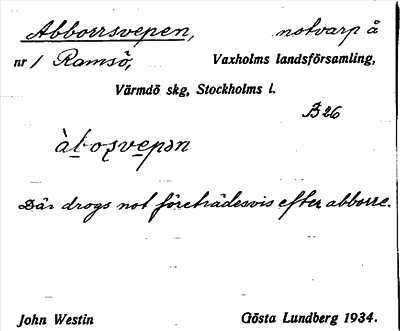 Abborrsvepen, notvarp å
nr 1 Ramsö, Vaxholms landsförsamling,
Värmdö skg, Stockholms l.
B 26
àbo̞ʂvepən
Där drogs not företrädesvis efter abborre.
John Westin Gösta Lundberg 1934.